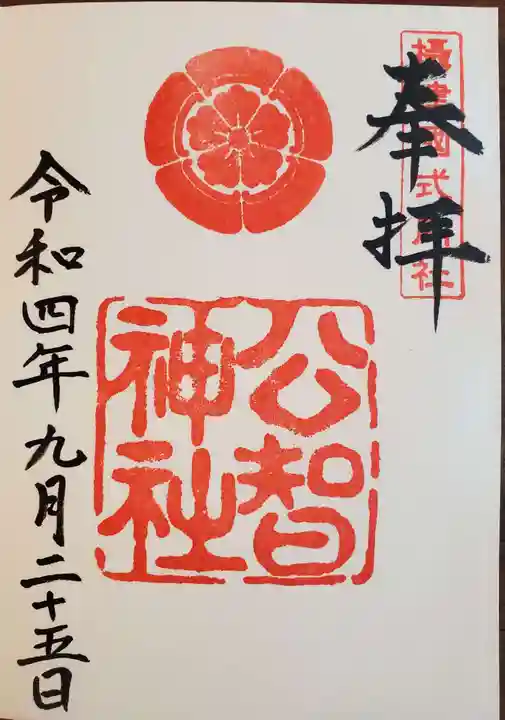 奉拝
攝津國式内社
公智
神社
令和四年九月二十五日